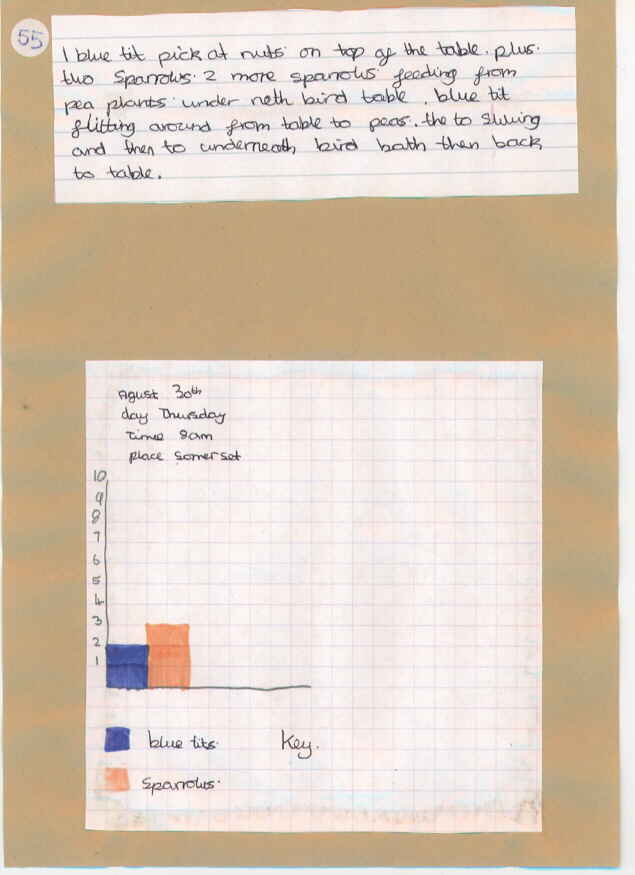 55
1 blue tit pick at nuts on top of the table. plus.
two Sparrows. 2 more sparrows feeding from
pea plants under neth bird table. blue tit
flitting around from table to peas. the to
and then to underneath bird bath then back
to table.
Agust 30th
day Thursday
Time 9am
place Somerset
10
9
8
7
6
5
4
3
2
1
blue tits. Key.
Sparrows.